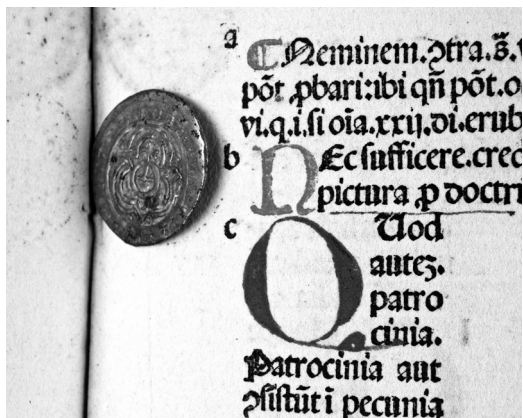 a
¶ Neminem.ꝯtra.s̄.
pōt ꝓbari:ibi qn̄ pōt.o
vi.q.i.si oīa.xxij.di.erub
b
NEc sufficere.cred
pictura ꝓ doctri
c
QUod
auteꝫ.
patro
cinia.
Patrocinia aut
ꝯsistūt ī pecunia